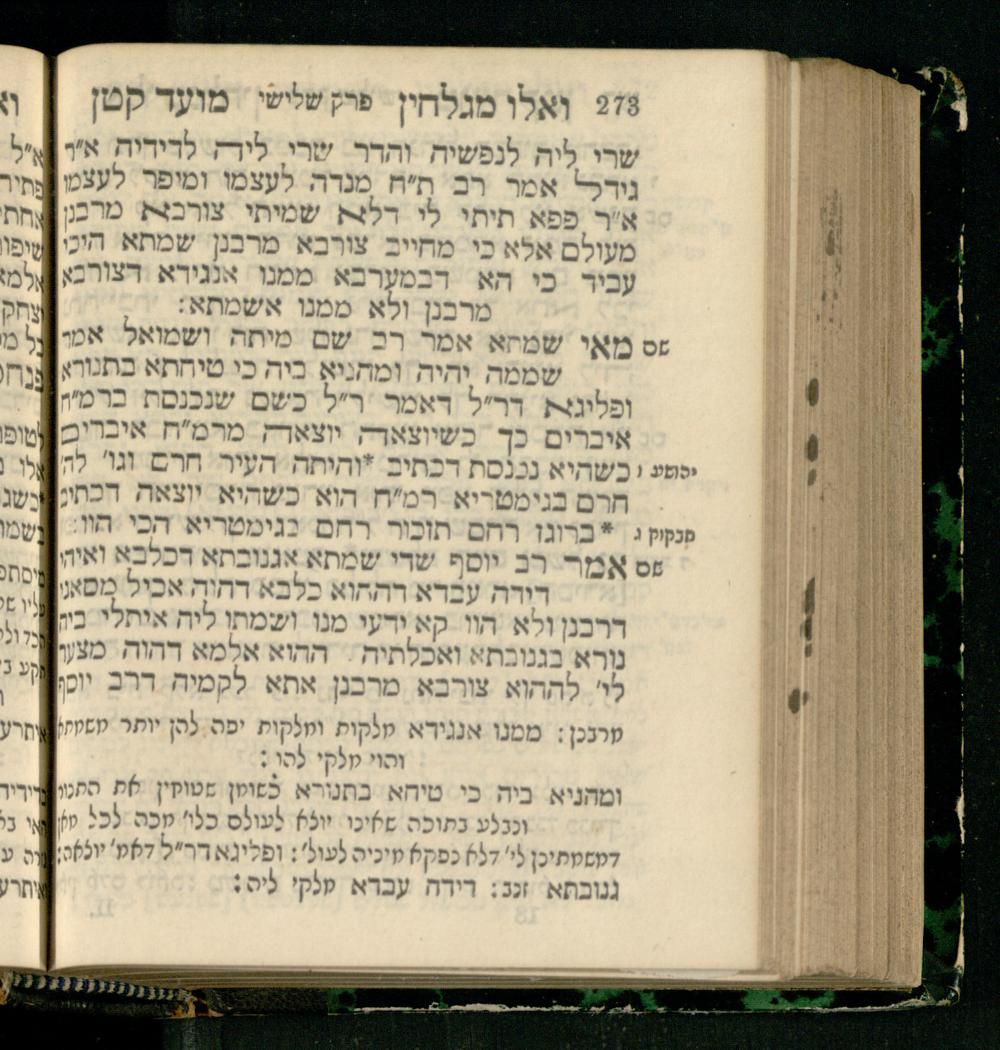 273 ואלו מגלחין פרק שלישי מועד קטן
שרי ליה לנפשיה והדר שרי ליה לדידיה א״ר
גידל אמר רב ת״ח מנדה לעצמו ומיפר לעצמו
א״ר פפא תיתי לי דלא שמיתי צורבא מרבנן
מעולם אלא כי מחייב צורבא מרבנן שמתא היכי
עביד כי הא דבמערבא ממנו אנגידא דצורבא
מרבנן ולא ממנו אשמתא:
שם מאי שמתא אמר רב שם מיתה ושמואל אמר
שממה יהיה ומהניא ביה כי טיחתא בתנורא
ופליגא דר״ל דאמר ר״ל כשם שנכנסת ברמ״ח
איברים כך כשיוצאה יוצאה מרמ״ח איברים
יהושע ו כשהיא נכנסת דכתיב *והיתה העיר חרם וגו׳ לה׳
חרם בגימטריא רמ״ח הוא כשהיא יוצאה דכתיב
חבקוק ג *ברוגז רחם תזכור רחם בגימטריא הכי הוו:
שם אמר רב יוסף שדי שמתא אגנובתא דכלבא ואיהי
דידה עבדא דההוא כלבא דהוה אכיל מסאני
דרבנן ולא הוו קא ידעי מנו ושמתו ליה איתלי ביה
נורא בגנובתא ואכלתיה. ההוא אלמא דהוה מצער
לי׳ לההוא צורבא מרבנן אתא לקמיה דרב יוסף
מרבנן: ממנו אנגידא מלקות ומלקות יפה להן יותר משמתא
והוי מלקי להו:
ומהניא ביה כי טיחא בתנורא כשומן שטוחין את התנור
ונבלע בתוכה שאינו יוצא לעולם כלו׳ מכה לכל מאן
דמשמתינן לי׳ דלא פסקא מיניה לעול׳: ופליגא דר״ל דאמ׳ יוצאה:
גנובתא זנב: דידה עבדא מלקי ליה: